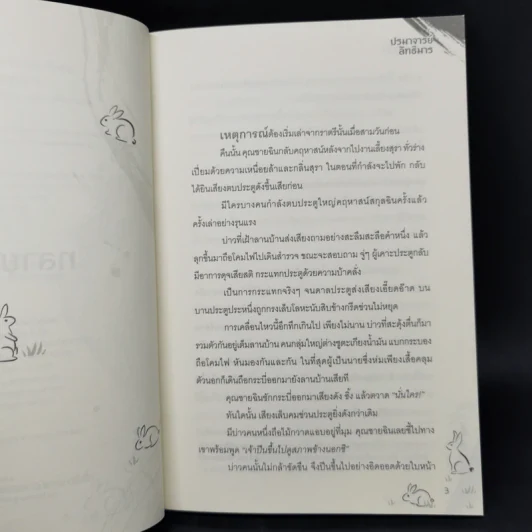 ปรมาจารย์
ลัทธิมาร
เหตุการณ์ต้องเริ่มเล่าจากราตรีนั้นเมื่อสามวันก่อน
คืนนั้น คุณชายฉินกลับคฤหาสน์หลังจากไปงานเลี้ยงสุรา ทั่วร่าง
เปี่ยมด้วยความเหนื่อยล้าและกลิ่นสุรา ในตอนที่กำลังจะไปพัก กลับ
ได้ยินเสียงตบประตูดังขึ้นเสียก่อน
มีใครบางคนกำลังตบประตูใหญ่คฤหาสน์สกุลฉินครั้งแล้ว
ครั้งเล่าอย่างรุนแรง
บ่าวที่เฝ้าลานบ้านส่งเสียงถามอย่างสะลึมสะลือคำหนึ่ง แล้ว
ลุกขึ้นมาถือโคมไฟไปเดินสำรวจ ขณะจะสอบถาม จู่ๆ ผู้เคาะประตูกลับ
มีอาการดุจเสียสติ กระแทกประตูด้วยความบ้าคลั่ง
เป็นการกระแทกจริงๆ จนดาลประตูส่งเสียงเอี๊ยดอ๊าด บน
บานประตูประหนึ่งถูกกรงเล็บโลหะนับสิบข้างกรีดข่วนไม่หยุด
การเคลื่อนไหวนี้อึกทึกเกินไป เพียงไม่นาน บ่าวที่สะดุ้งตื่นก็มา
รวมตัวกันอยู่เต็มลานบ้าน คนกลุ่มใหญ่ต่างชูตะเกียงน้ำมัน แบกกระบอง
ถือโคมไฟ หันมองกันและกัน ในที่สุดผู้เป็นนายซึ่งห่มเพียงเสื้อคลุม
ตัวนอกก็เดินถือกระบี่ออกมายังลานบ้านเสียที
คุณชายฉินชักกระบี่ออกมาเสียงดัง ชิ้ง แล้วตวาด “นั่นใคร!”
ทันใดนั้น เสียงเล็บคมข่วนประตูยิ่งดังกว่าเดิม
มีบ่าวคนหนึ่งถือไม้กวาดแอบอยู่ที่มุม คุณชายฉินเลยชี้ไปทาง
เขาพร้อมพูด “เจ้าปีนขึ้นไปดูสภาพข้างนอกซิ”
บ่าวคนนั้นไม่กล้าขัดขืน จึงปีนขึ้นไปอย่างอิดออดด้วยใบหน้า
3